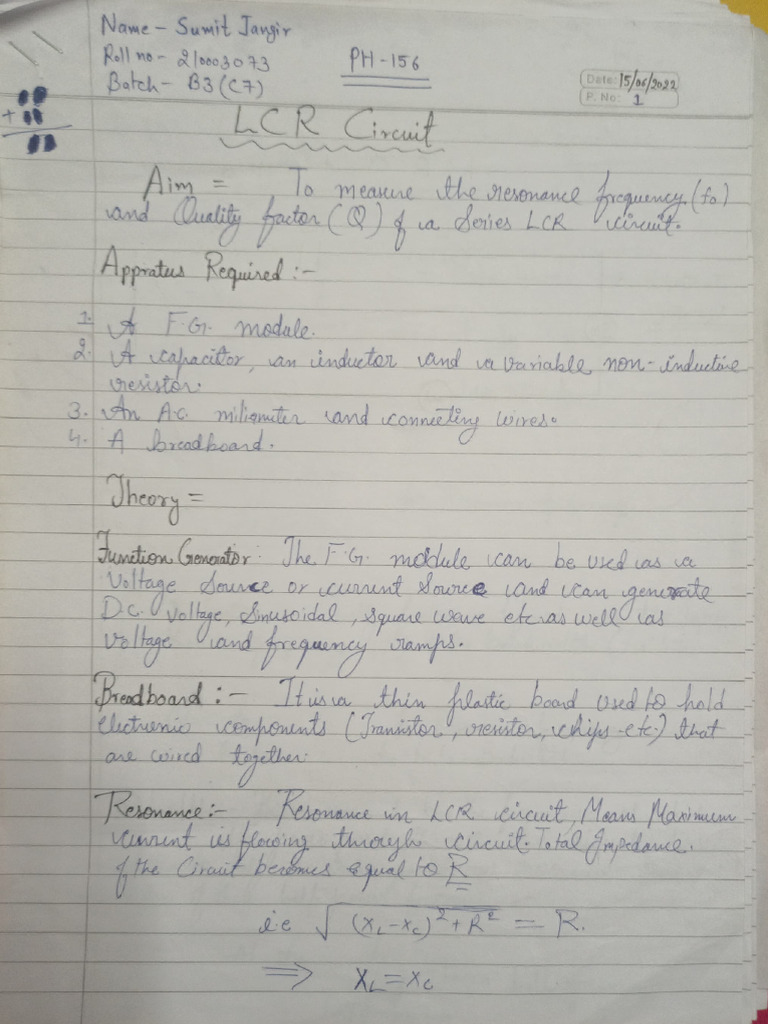 Name - Sumit Jangir
Roll no - 210003073
Batch - B3 (C7)
PH-156
Date: 15/06/2022
P. No: 1
LCR Circuit
Aim = To measure the resonance frequency (fo)
and Quality factor (Q) of a Series LCR circuit.
Appratus Required :-
1. A F.G. module.
2. A capacitor, an inductor and a variable non-inductive
resistor.
3. An A.C. miliamiter and connecting wires.
4. A breadboard.
Theory =
Function Generator : The F.G. module can be used as a
voltage source or current source and can generate
D.C. voltage, sinusoidal, square wave etc as well as
voltage and frequency ramps.
Breadboard :- It is a thin plastic board used to hold
electronic components (Transistor, resistor, chips etc.) that
are wired together.
Resonance :- Resonance in LCR circuit, Means Maximum
current is flowing through circuit. Total Impedance.
of the Circuit becomes equal to R
i.e √(XL-XC)²+R² = R.
⇒ XL=XC